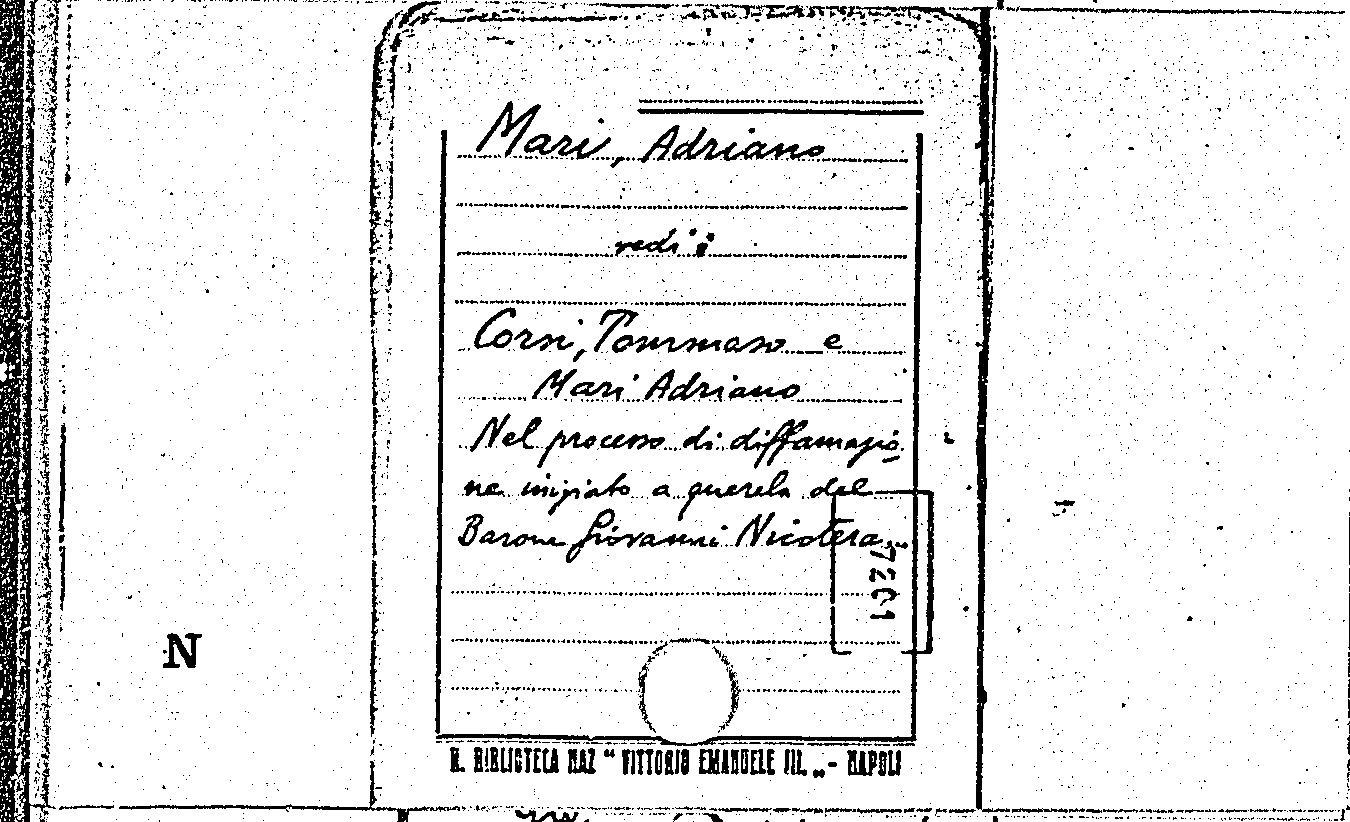 Mari, Adriano
vedi:
Corsi, Tommaso e
Mari Adriano
Nel processo di diffamazio
ne iniziato a querela del
Barone Giovanni Nicotera...
N
R. BIBLIOTECA NAZ “ VITTORIO EMANUELE III. „ - NAPOLI